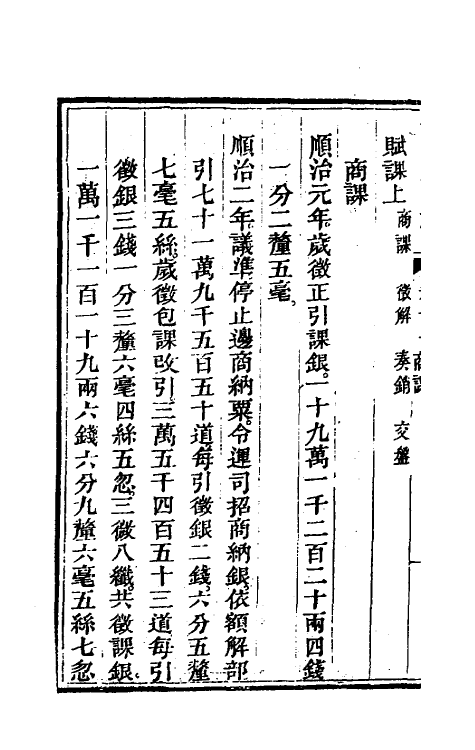 賦課上 商課 徵解 奏銷 交盤
商課
順治元年歲徵正引課銀一十九萬一千二百二十兩四錢
一分二釐五毫
順治二年議準停止邊商納粟令運司招商納銀依額解部
引七十一萬九千五百五十道每引徵銀二錢六分五釐
七毫五絲歲徵包課改引三萬五千四百五十三道每引
徵銀三錢一分三釐六毫四絲五忽三微八纖共徵課銀
一萬一千一百一十九兩六錢六分九釐六毫五絲七忽